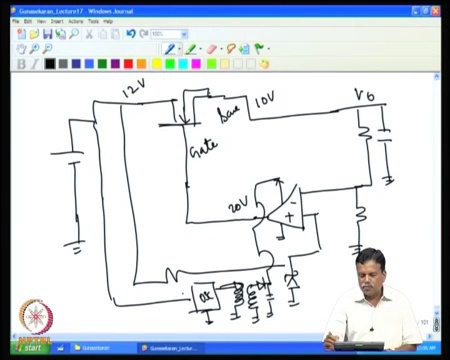 Gunasekaran_Lecture17 - Windows Journal
File Edit View Insert Actions Tools Help
100%
B I
12V
10V
Vo
Gate
20V
- 
+
NPTEL
start
Gunasekaran
Gunasekaran_Lectu...